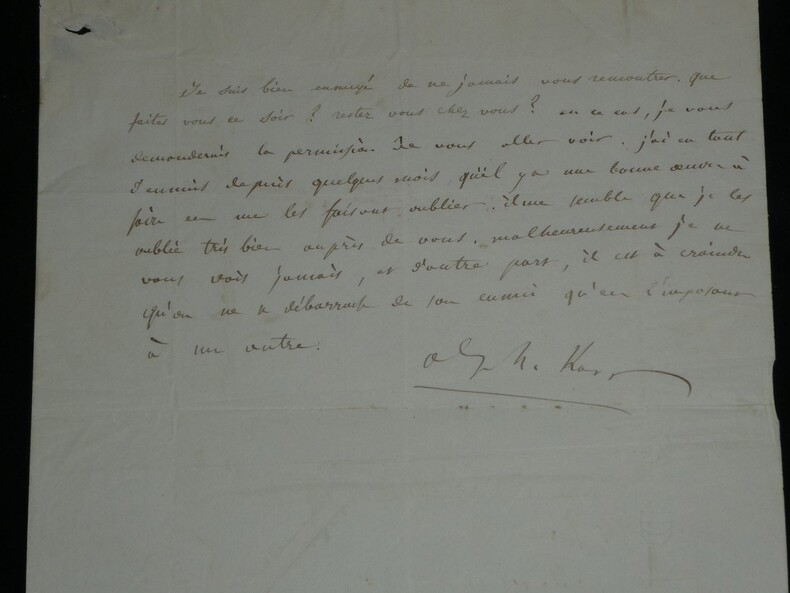 Je suis bien ennuyé de ne jamais vous rencontrer. que
faites vous ce soir ? restez vous chez vous ? en ce cas, je vous
demanderais la permission de vous aller voir. j'ai eu tant
d'ennuis depuis quelques mois, qu'il y a une bonne œuvre à
faire en me les faisant oublier. il me semble que je les
oublie très bien auprès de vous. malheureusement je ne
vous vois jamais, et d'autre part, il est à craindre
qu'on ne se débarrasse de son ennui qu'en l'imposant
à un autre.
Alph. Karr